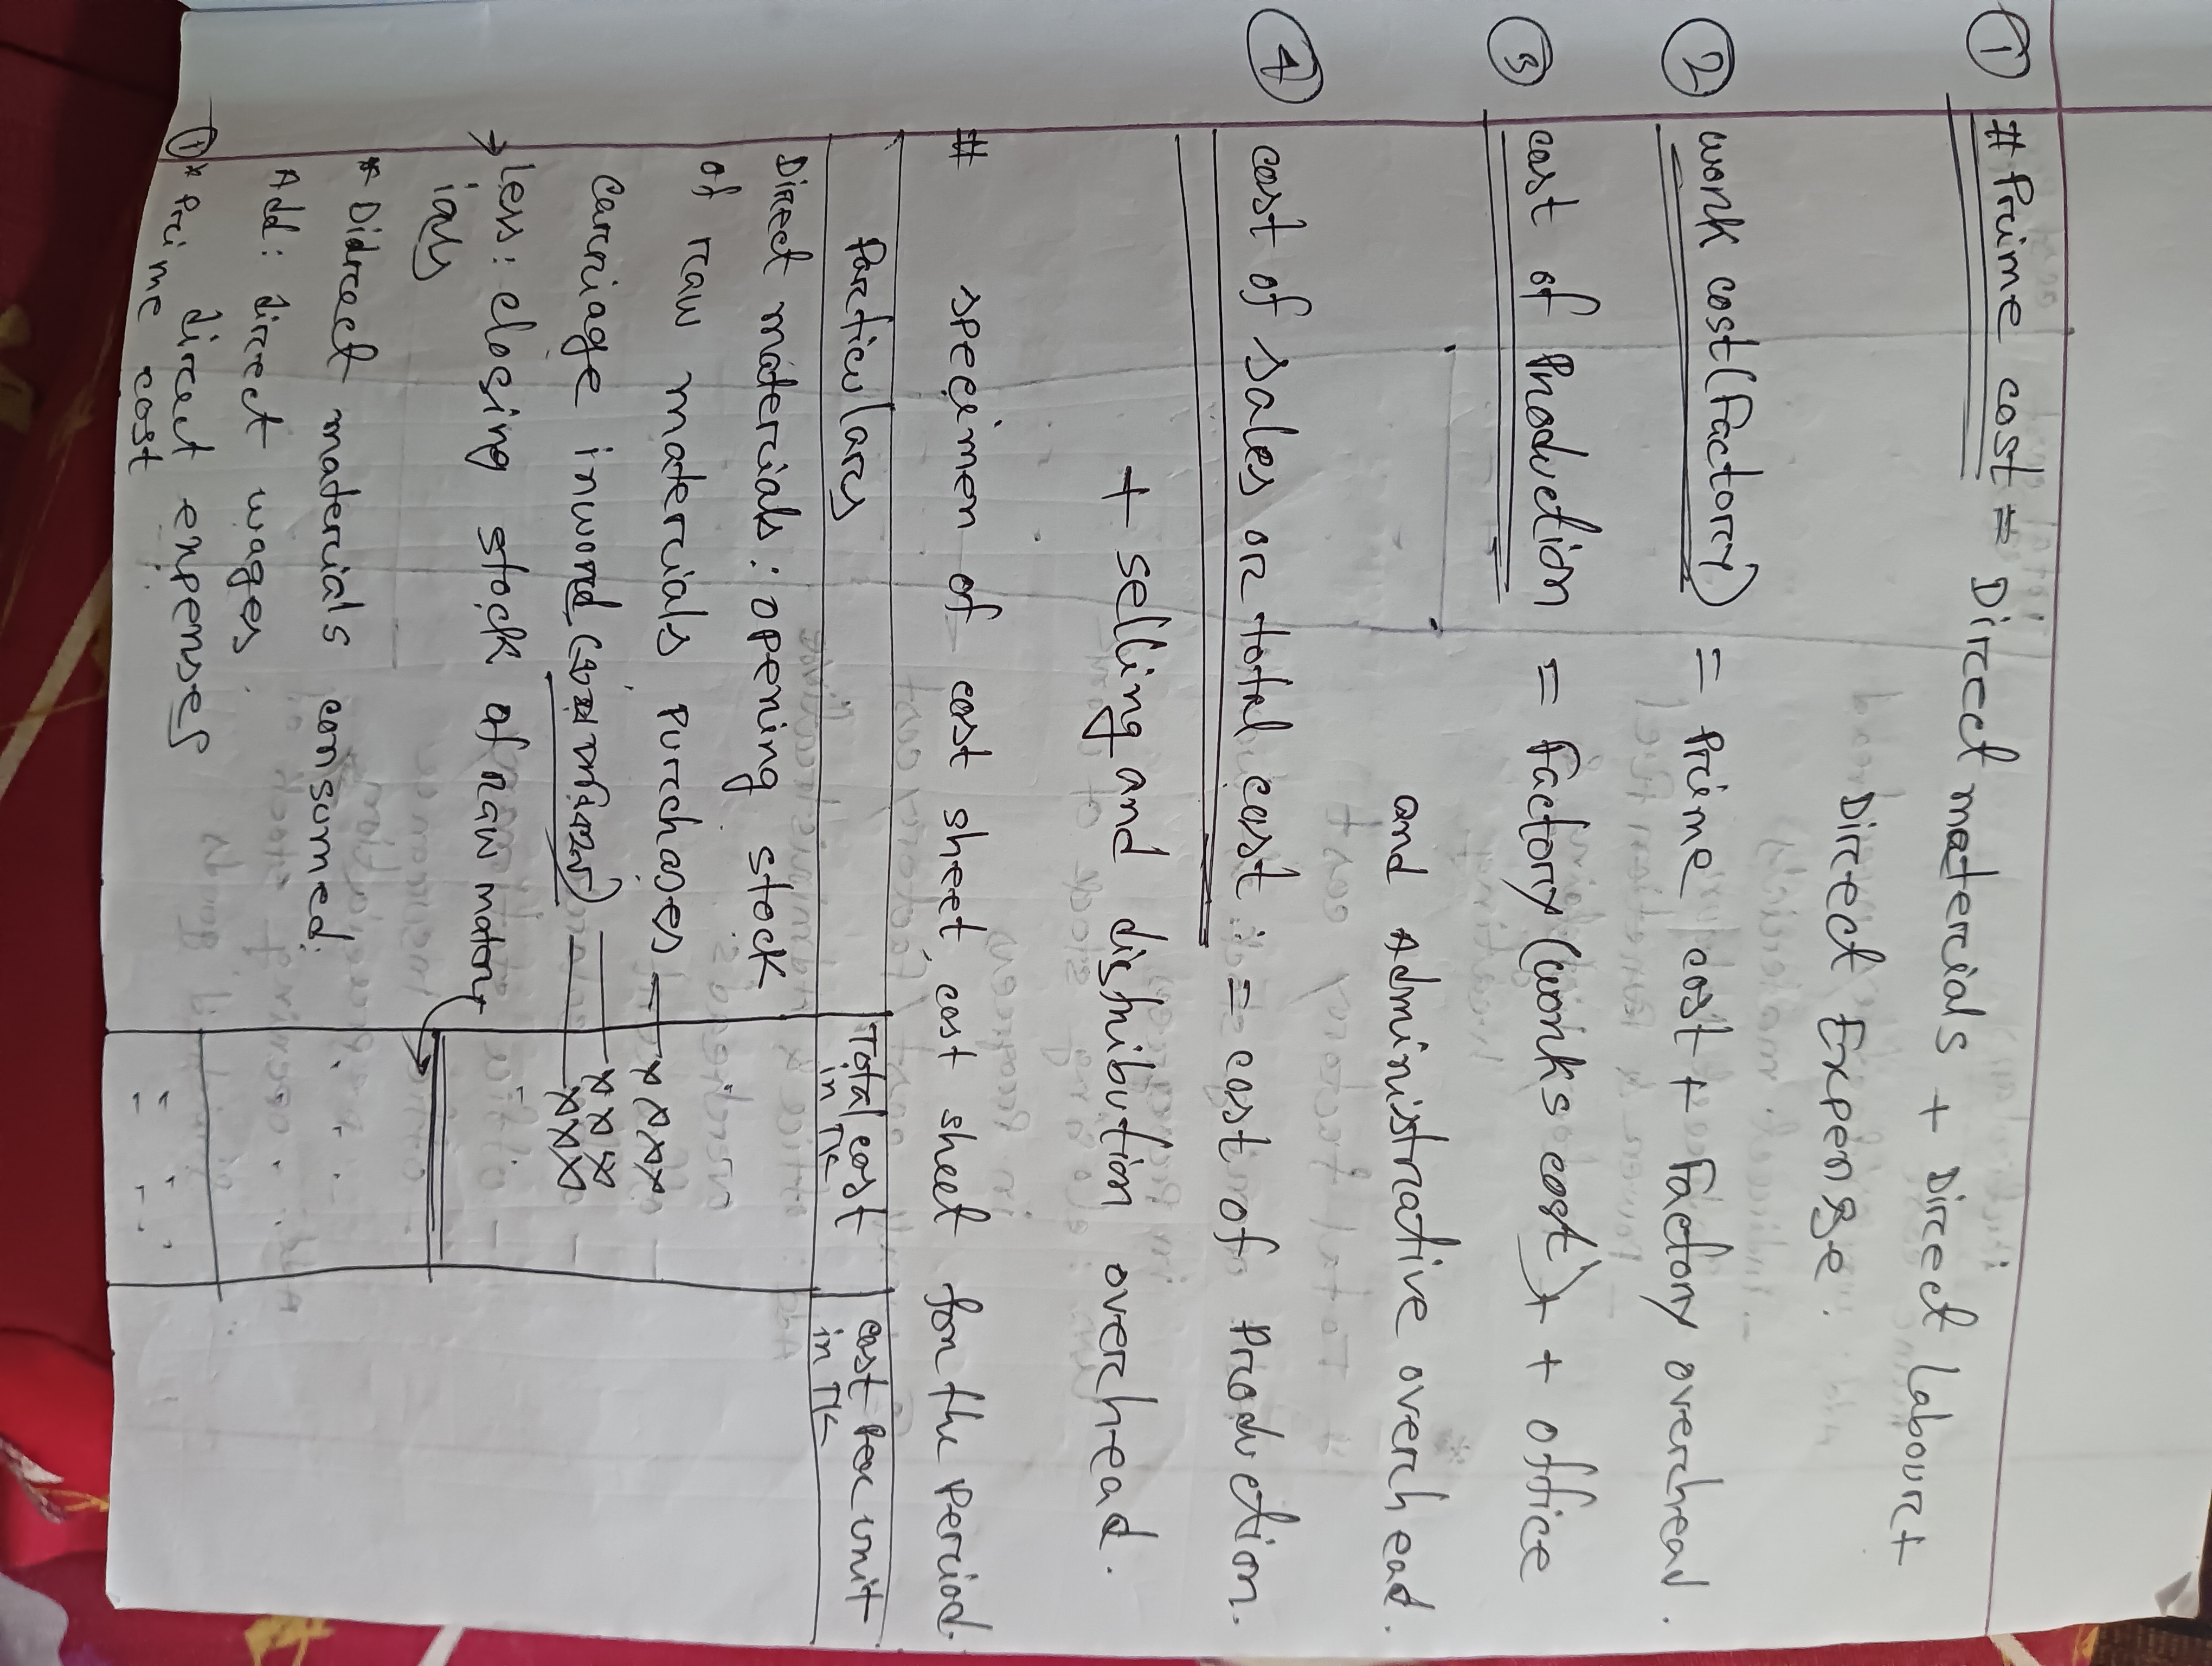 ① # Prime cost = Direct materials + Direct Labour +
Direct Expense.
② work cost (Factory) = Prime cost + Factory overhead.
③ cost of Production = Factory (works cost) + + office
and Administrative overhead.
④ cost of sales or total cost : = cost of Production.
+ selling and distribution overhead.
# specimen of cost sheet, cost sheet for the Period.
Particulars Total cost in TK cost Per unit in TK
Direct materials: opening stock
of raw materials purchases — xxxx
Carriage inword ( পরিবহন) — xxx
xxx
Less: closing stock of raw mater
ials
* Didrect materials consumed:
Add: direct wages
direct expenses
①* Prime cost